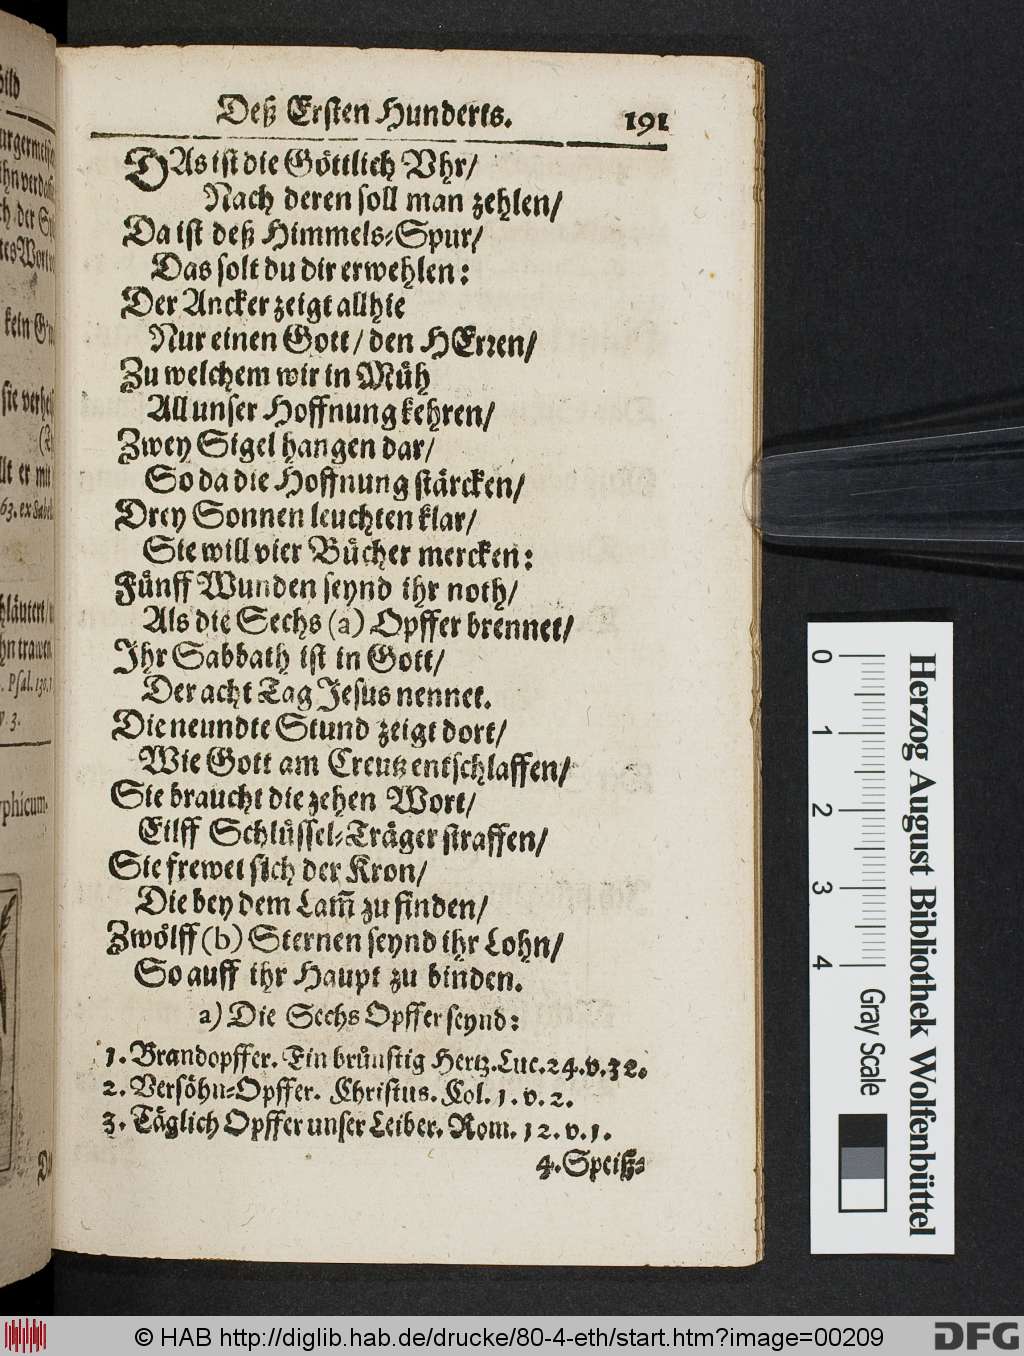 Deß Ersten Hunderts. 191
DAs ist die Göttlich Vhr/
Nach deren soll man zehlen/
Da ist deß Himmels-Spur/
Das solt du dir erwehlen:
Der Ancker zeigt allhie
Nur einen Gott/ den HErren/
Zu welchem wir in Müh
All unser Hoffnung kehren/
Zwey Sigel hangen dar/
So da die Hoffnung stärcken/
Drey Sonnen leuchten klar/
Sie will vier Bücher mercken:
Fünff Wunden seynd ihr noth/
Als die Sechs (a) Opffer brennet/
Ihr Sabbath ist in Gott/
Der acht Tag Jesus nennet.
Die neundte Stund zeigt dort/
Wie Gott am Creutz entschlaffen/
Sie braucht die zehen Wort/
Eilff Schlüssel-Träger straffen/
Sie frewet sich der Kron/
Die bey dem Lam̃ zu finden/
Zwölff (b) Sternen seynd ihr Lohn/
So auff ihr Haupt zu binden.
a) Die Sechs Opffer seynd:
1. Brandopffer. Ein brünstig Hertz. Luc. 24. v. 32.
2. Versöhn-Opffer. Christus. Col. 1. v. 2.
3. Täglich Opffer unser Leiber. Rom. 12. v. 1.
4. Speiß-
kein
63. ex
Psal. 130.
v. 3.
0 1 2 3 4
Herzog August Bibliothek Wolfenbüttel
Gray Scale
© HAB http://diglib.hab.de/drucke/80-4-eth/start.htm?image=00209
DFG